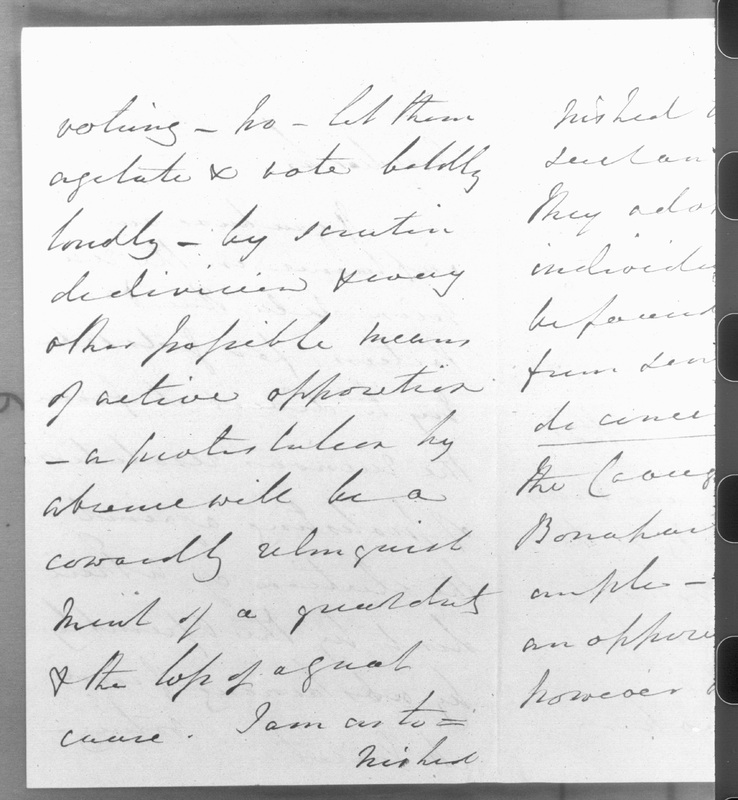 voting – no – let them
agetate & vote boldly
loudly – by scrutin
de division & every
other possible means
of active opposition
– a protestation by
absence will be a
cowardly relinquish
ment of a great duty
& the loss of a great
cause. I am as to=
nished
nished
they
individu
be found
from
the
Bonapar
ample –
an
however